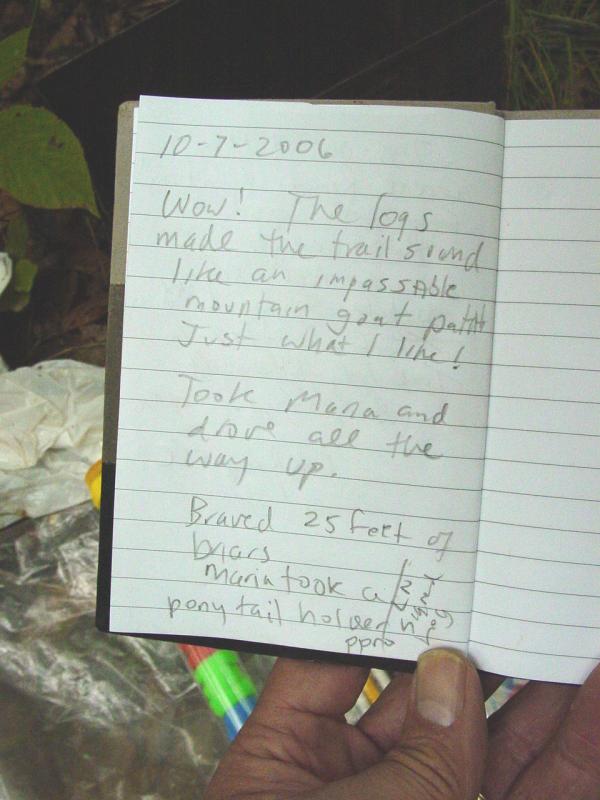 10-7-2006
Wow! The logs
made the trail sound
like an impassAble
mountain goat path
Just what I like!
Took Maria and
drove all the
way up.
Braved 25 feet of
briars
Maria took a
pony tail holder
signed log